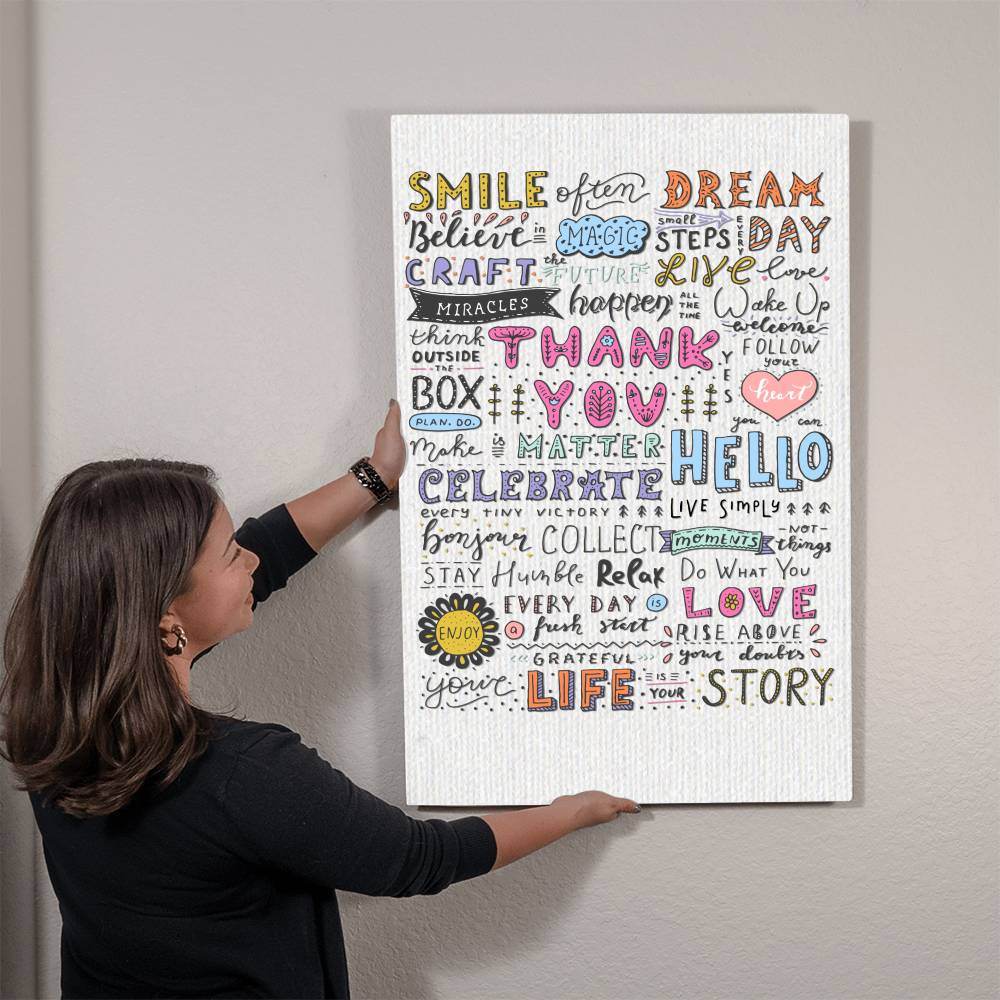 SMILE often DREAM
Believe in MAGIC small STEPS EVERY DAY
CRAFT the FUTURE LIVE love
MIRACLES happen ALL THE TIME Wake Up
welcome
think OUTSIDE THE BOX
THANK YOU
YES you can
FOLLOW your heart
PLAN. DO.
Make is MATTER
HELLO
CELEBRATE
every TINY VICTORY
LIVE SIMPLY
bonjour COLLECT moments -NOT- things
STAY Humble Relax Do What You
LOVE
ENJOY
EVERY DAY is a fresh start
RISE ABOVE your doubts
GRATEFUL
your LIFE IS YOUR STORY